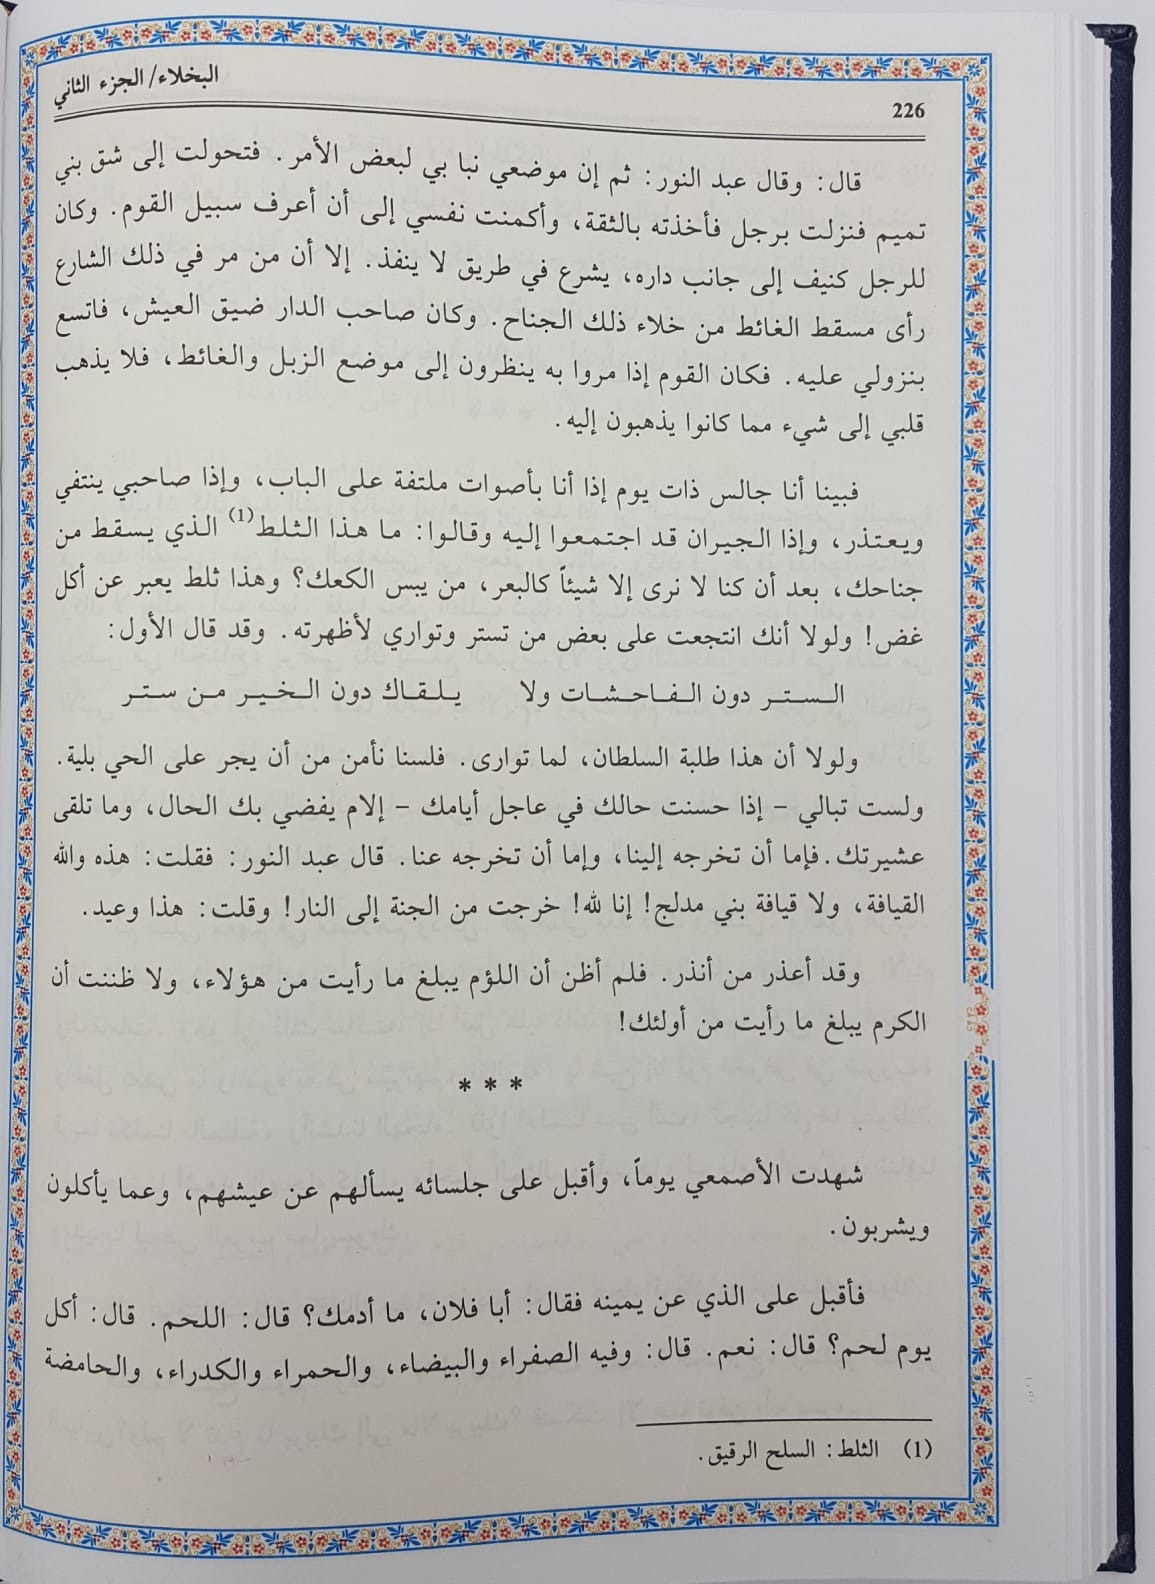 البخلاء/الجزء الثاني
226
قال: وقال عبد النور: ثم إن موضعي نبا بي لبعض الأمر. فتحولت إلى شق بني
تميم فنزلت برجل فأخذته بالثقة، وأكمنت نفسي إلى أن أعرف سبيل القوم. وكان
للرجل كنيف إلى جانب داره، يشرع في طريق لا ينفذ. إلا أن من مر في ذلك الشارع
رأى مسقط الغائط من خلاء ذلك الجناح. وكان صاحب الدار ضيق العيش، فاتسع
بنزولي عليه. فكان القوم إذا مروا به ينظرون إلى موضع الزبل والغائط، فلا يذهب
قلبي إلى شيء مما كانوا يذهبون إليه.
فبينا أنا جالس ذات يوم إذا أنا بأصوات ملتفة على الباب، وإذا صاحبي ينتفي
ويعتذر، وإذا الجيران قد اجتمعوا إليه وقالوا: ما هذا الثلط(1) الذي يسقط من
جناحك، بعد أن كنا لا نرى إلا شيئاً كالبعر، من يبس الكعك؟ وهذا ثلط يعبر عن أكل
غض! ولولا أنك انتجعت على بعض من تستر وتواري لأظهرته. وقد قال الأول:
الستر دون الفاحشات ولا يلقاك دون الخير من ستر
ولولا أن هذا طلبة السلطان، لما توارى. فلسنا نأمن من أن يجر على الحي بلية.
ولست تبالي - إذا حسنت حالك في عاجل أيامك - إلام يفضي بك الحال، وما تلقى
عشيرتك. فإما أن تخرجه إلينا، وإما أن تخرجه عنا. قال عبد النور: فقلت: هذه والله
القيافة، ولا قيافة بني مدلج! إنا لله! خرجت من الجنة إلى النار! وقلت: هذا وعيد.
وقد أعذر من أنذر. فلم أظن أن اللؤم يبلغ ما رأيت من هؤلاء، ولا ظننت أن
الكرم يبلغ ما رأيت من أولئك!
* * *
شهدت الأصمعي يوماً، وأقبل على جلسائه يسألهم عن عيشهم، وعما يأكلون
ويشربون.
فأقبل على الذي عن يمينه فقال: أبا فلان، ما أدمك؟ قال: اللحم. قال: أكل
يوم لحم؟ قال: نعم. قال: وفيه الصفراء والبيضاء، والحمراء والكدراء، والحامضة
(1) الثلط: السلح الرقيق.